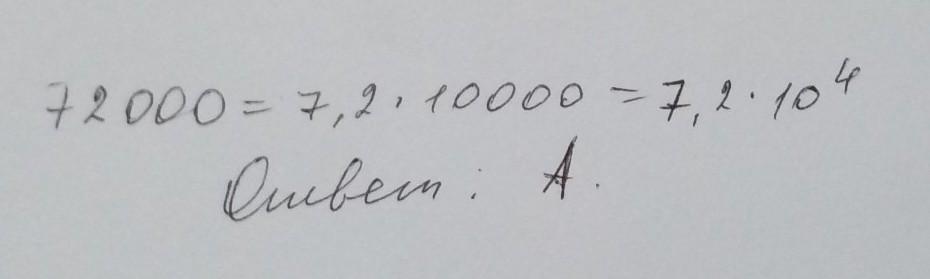 72000 = 7,2 · 10000 = 7,2 · 10⁴
Ответ: А.